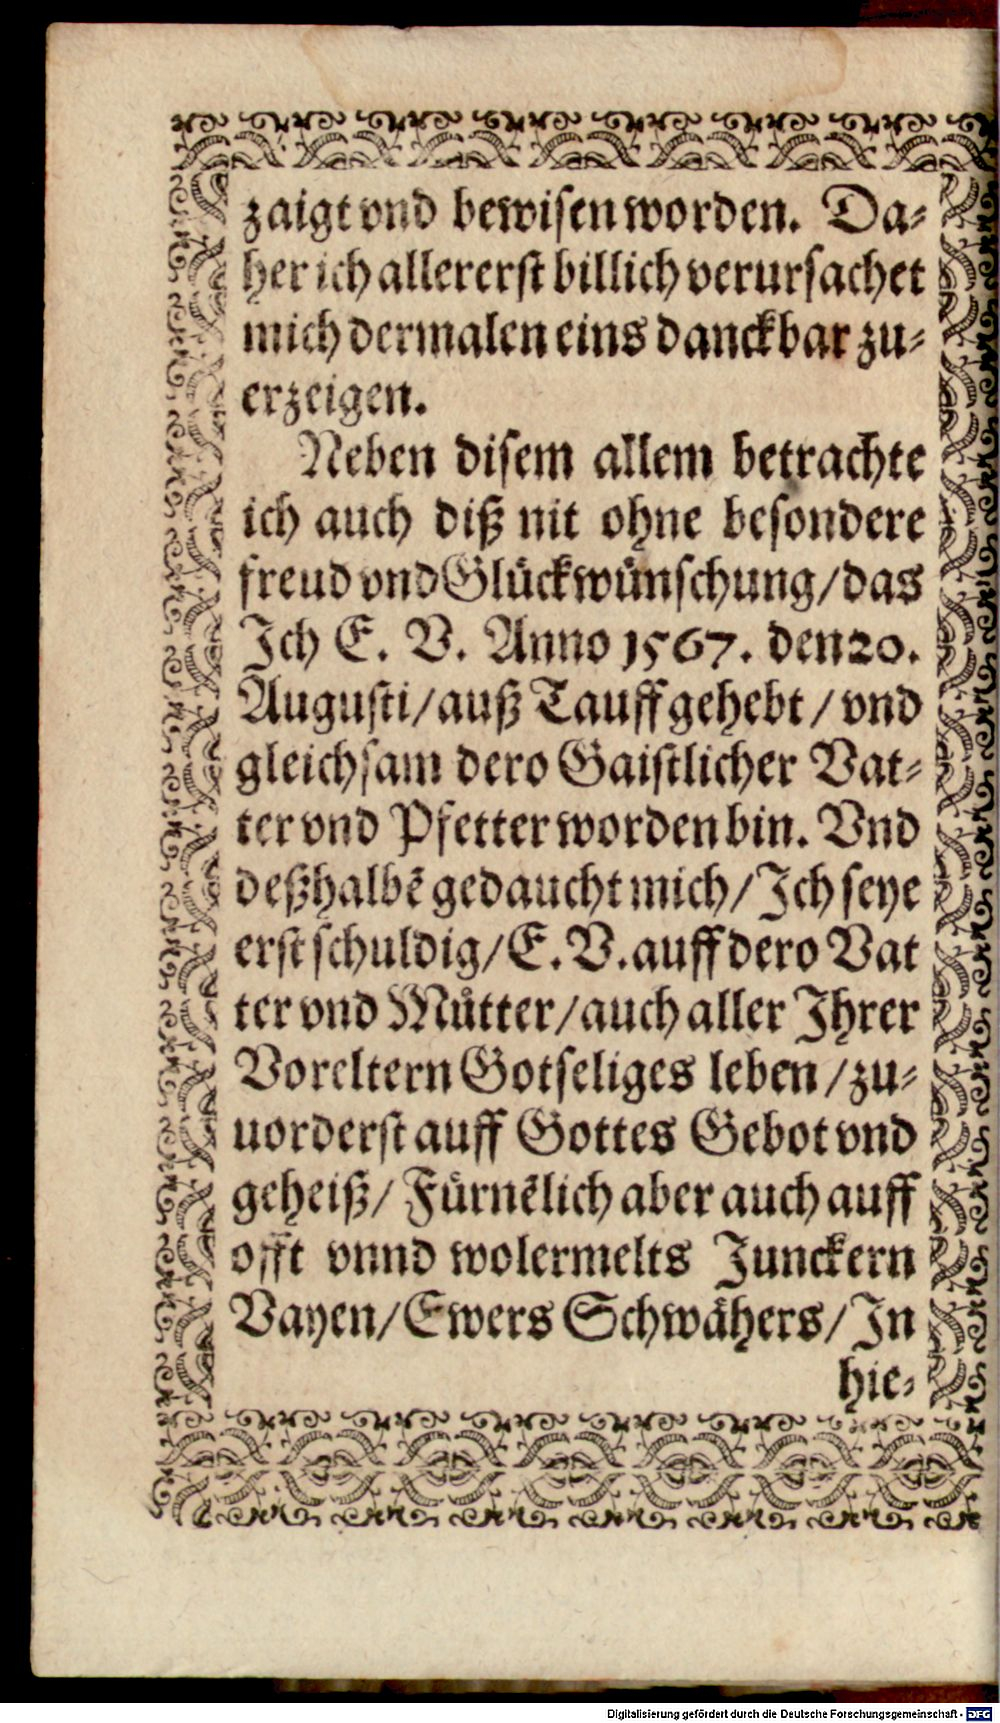 zaigt vnd bewisen worden. Da⸗
her ich allererst billich verursachet
mich dermalen eins danckbar zu⸗
erzeigen.
Neben disem allem betrachte
ich auch diß nit ohne besondere
freud vnd Glückwünschung/das
Ich E. V. Anno 1567. den 20.
Augusti/auß Tauff gehebt/vnd
gleichsam dero Gaistlicher Vat⸗
ter vnd Pfetter worden bin. Vnd
deßhalbē gedaucht mich/Ich seye
erst schuldig/E. V. auff dero Vat
ter vnd Muͤtter/auch aller Ihrer
Voreltern Gotseliges leben/zu⸗
uorderst auff Gottes Gebot vnd
geheiß/Fürnēlich aber auch auff
offt vnnd wolermelts Junckern
Vayen/Ewers Schwähers/In
hie⸗
Digitalisierung gefördert durch die Deutsche Forschungsgemeinschaft - DFG